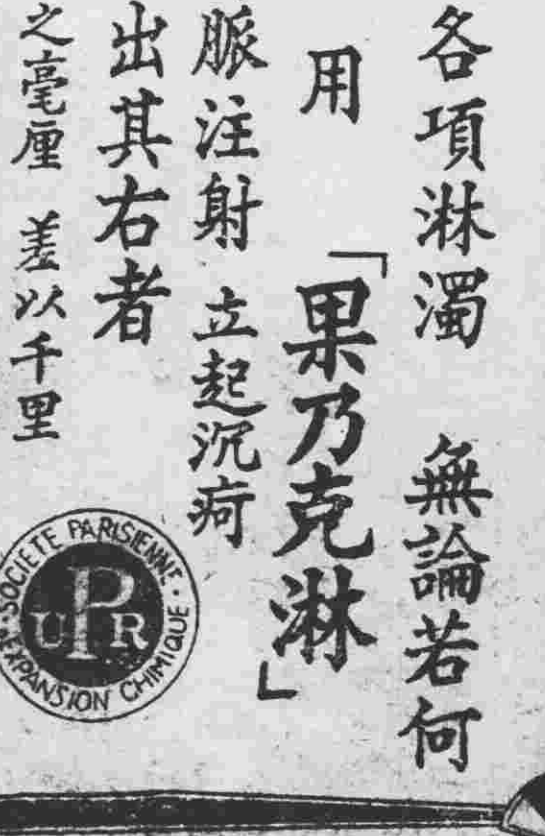 各項淋濁 無論若何
用 「果乃克淋」
脈注射 立起沉疴
出其右者
之毫厘 差以千里
SOCIETE PARISIENNE · EXPANSION CHIMIQUE ·
UPR